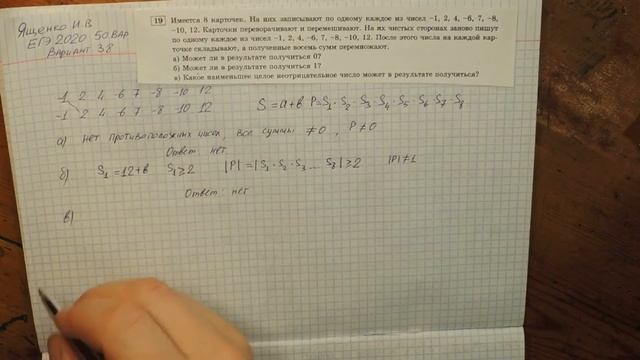 Ященко И.В.
ЕГЭ 2020 50 ВАР
Вариант 38
19 Имеется 8 карточек. На них записывают по одному каждое из чисел −1, 2, 4, −6, 7, −8,
−10, 12. Карточки переворачивают и перемешивают. На их чистых сторонах заново пишут
по одному каждое из чисел −1, 2, 4, −6, 7, −8, −10, 12. После этого числа на каждой кар-
точке складывают, а полученные восемь сумм перемножают.
а) Может ли в результате получиться 0?
б) Может ли в результате получиться 1?
в) Какое наименьшее целое неотрицательное число может в результате получиться?
-1 2 4 -6 7 -8 -10 12
-1 2 4 -6 7 -8 -10 12
S = a+b P=S₁·S₂·S₃·S₄·S₅·S₆·S₇·S₈
а) нет противоположных чисел, все суммы ≠0, P≠0
Ответ: нет
б) S₁ =12+b S₁≥2 |P| = |S₁·S₂·S₃... S₈|≥2 |P|≠1
Ответ: нет
в)